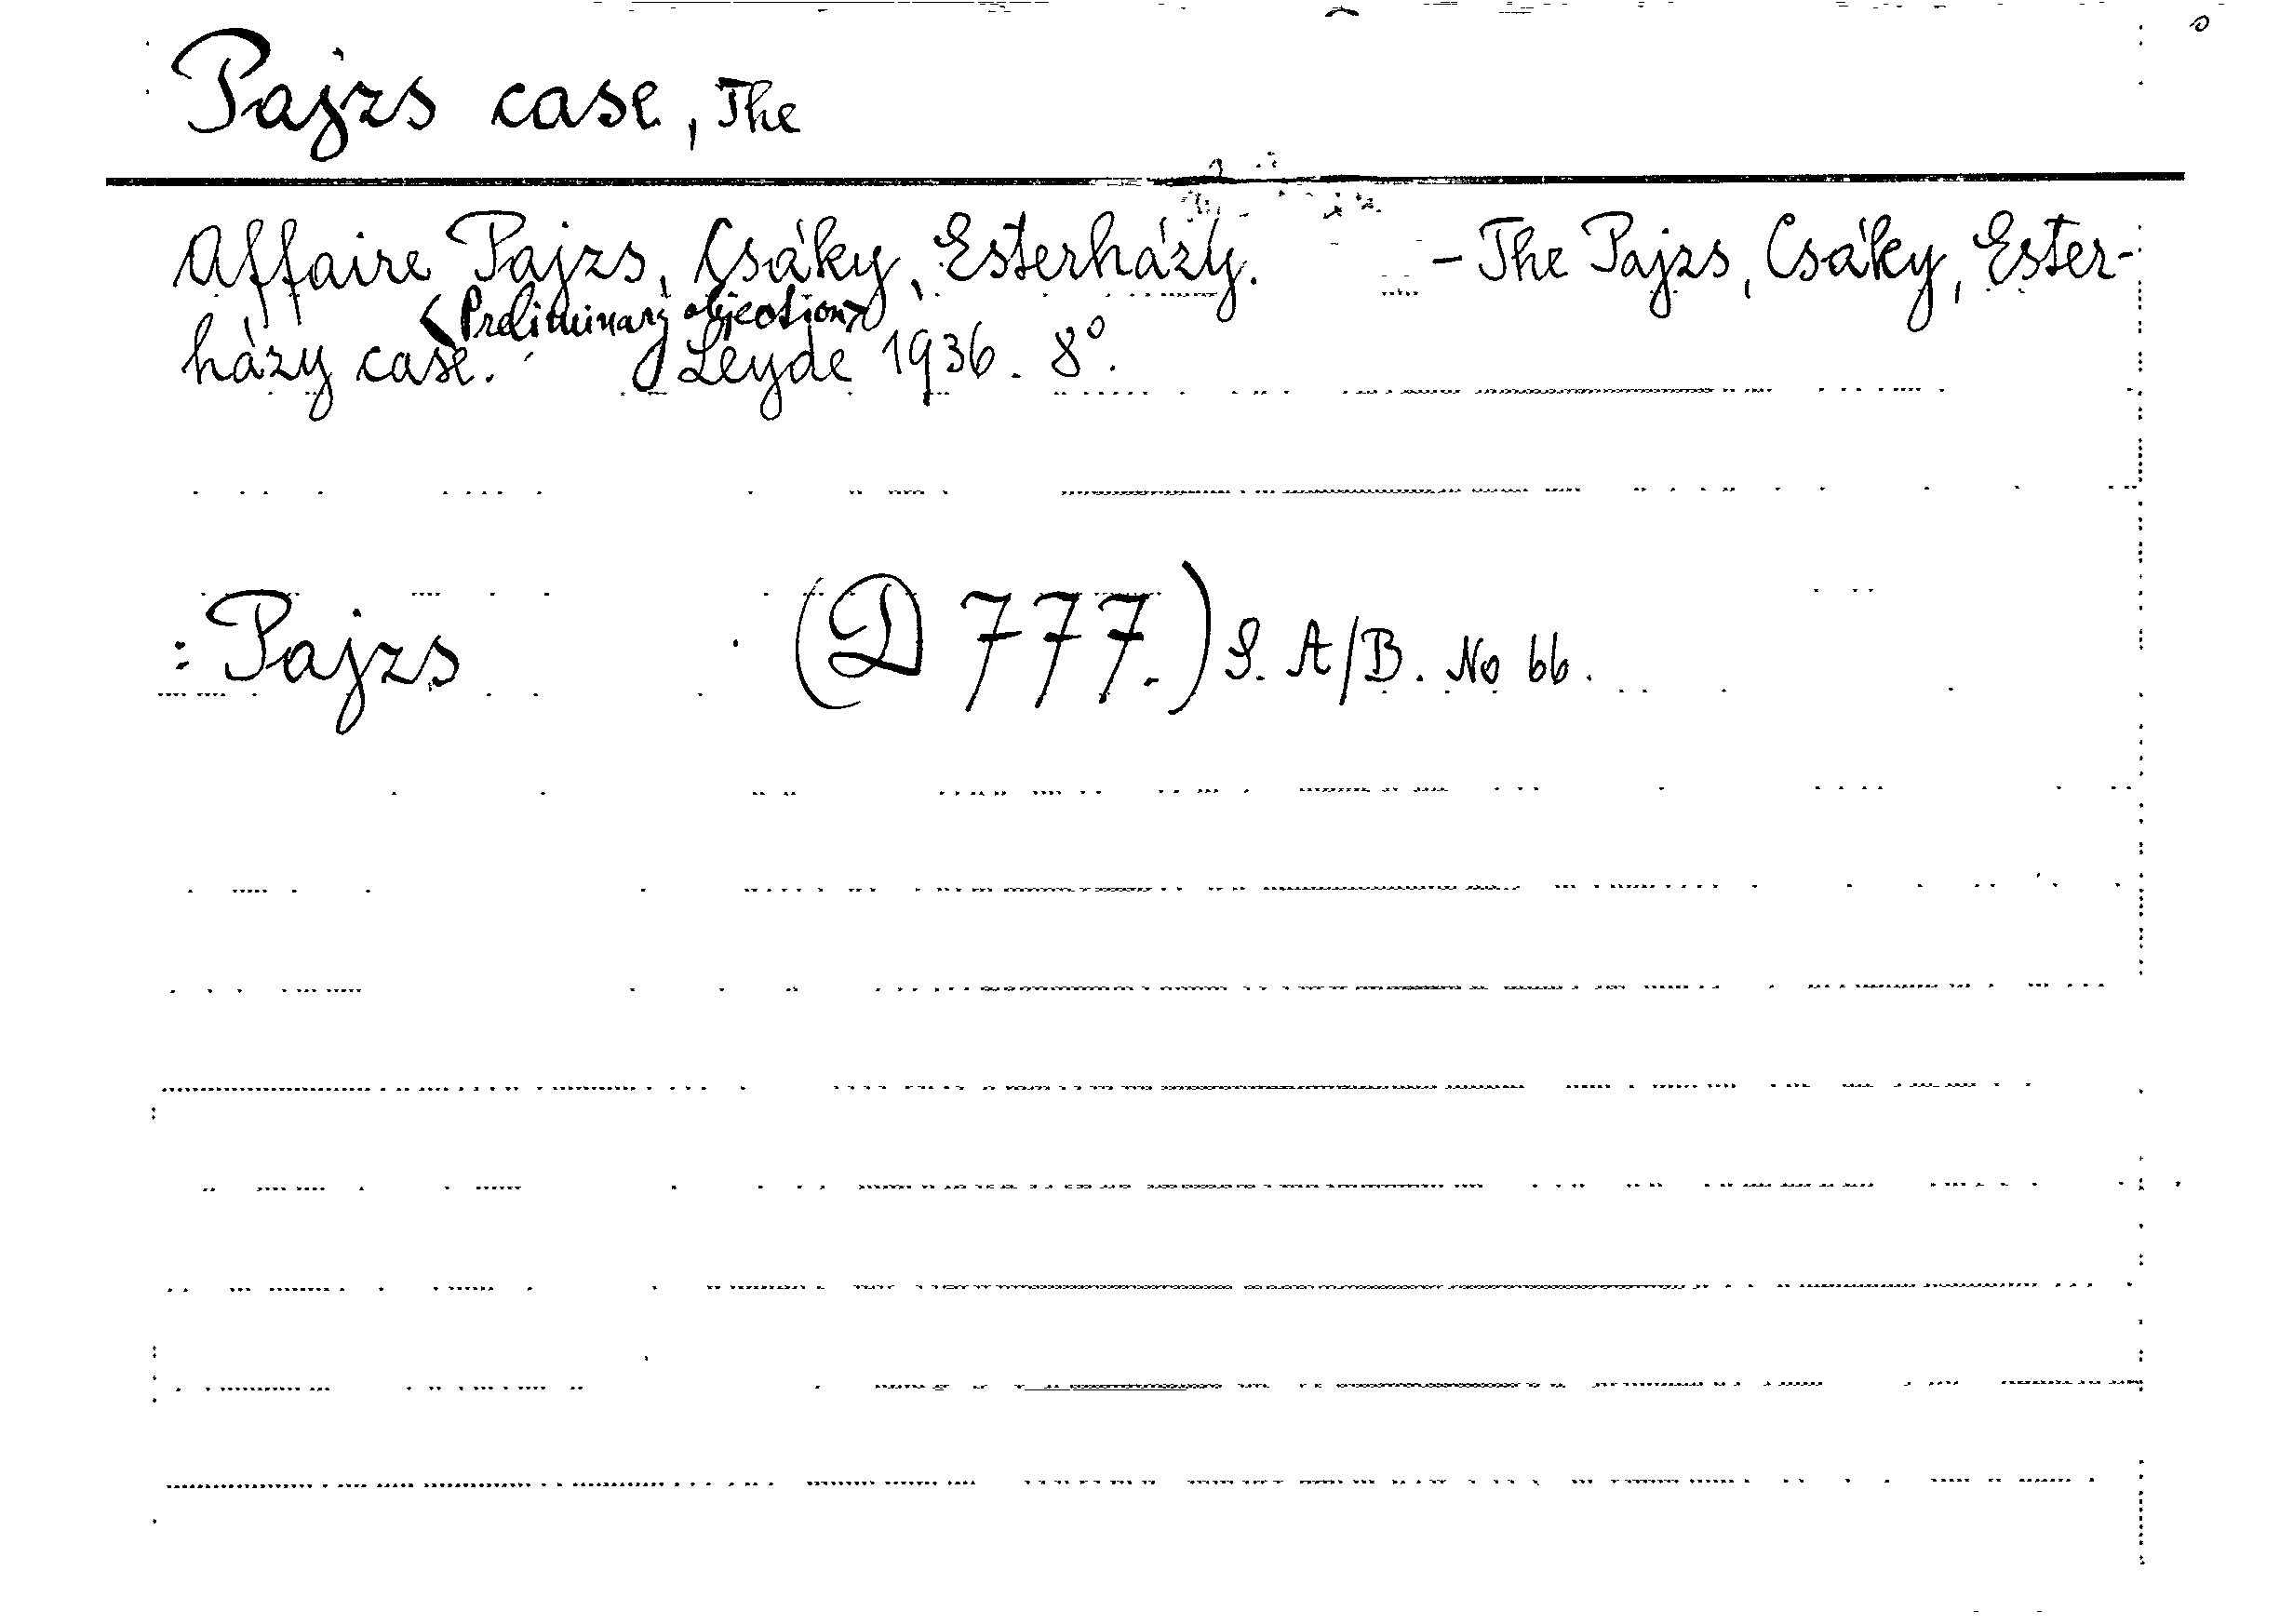 Pajzs case, The
Affaire Pajzs, Csáky, Esterházy. - The Pajzs, Csáky, Ester-
<Preliminary objection>
házy case. Leyde 1936. 8°.
: Pajzs (D 777.) S. A/B. No 66.